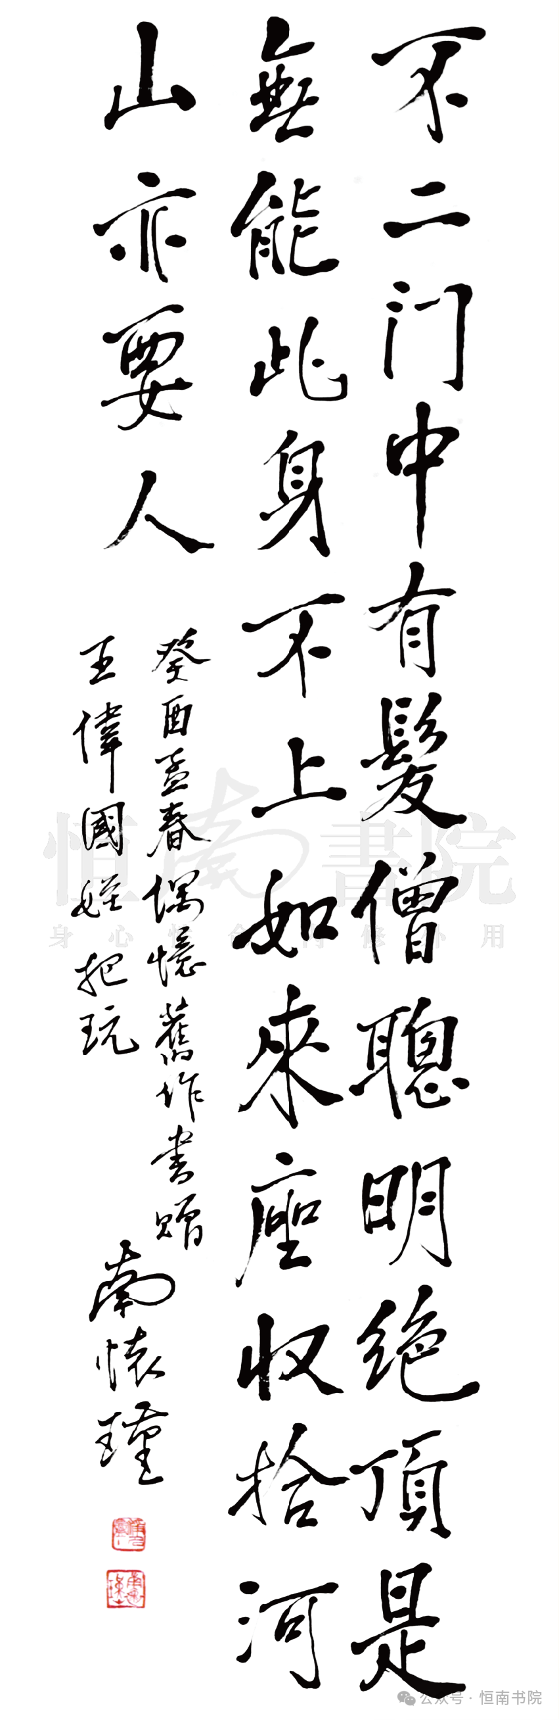 不二门中有髮僧聰明绝顶是
無能此身不上如來座收拾河
山亦要人
癸酉孟春偶憶舊作書贈
王偉國姪把玩
南懷瑾
恒南書院
公众号·恒南书院